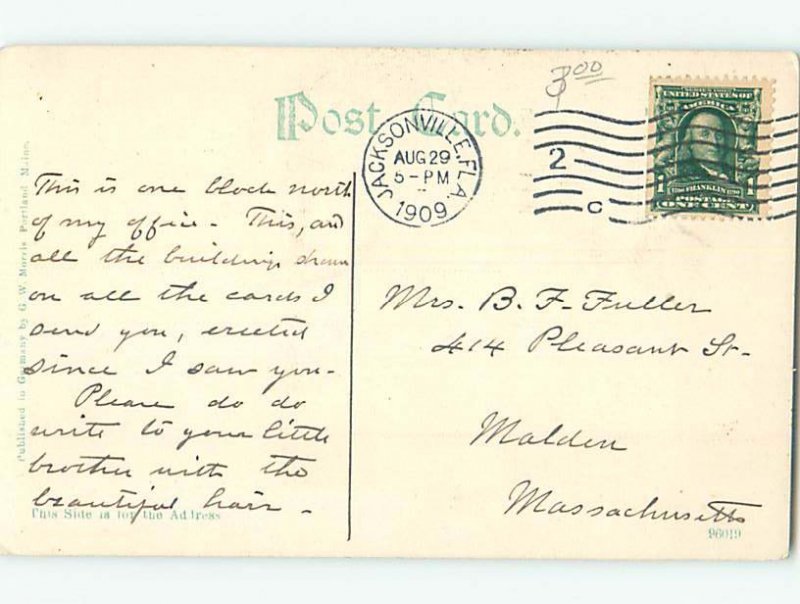 3.00
Post Card.
JACKSONVILLE, FLA.
AUG 29
5-PM
1909
2
C
SERIES 1902
UNITED STATES OF
AMERICA
1 FRANKLIN 1
POSTAGE
ONE CENT
This is one block north
of my office - This, and
all the buildings shown
on all the cards I
send you, erected
since I saw you -
Please do do
write to your little
brother with the
beautiful hair -
Mrs. B. F. Fuller
414 Pleasant St -
Malden
Massachusetts
Published in Germany by G. W. Morris Portland Maine.
This Side is for the Address
96019